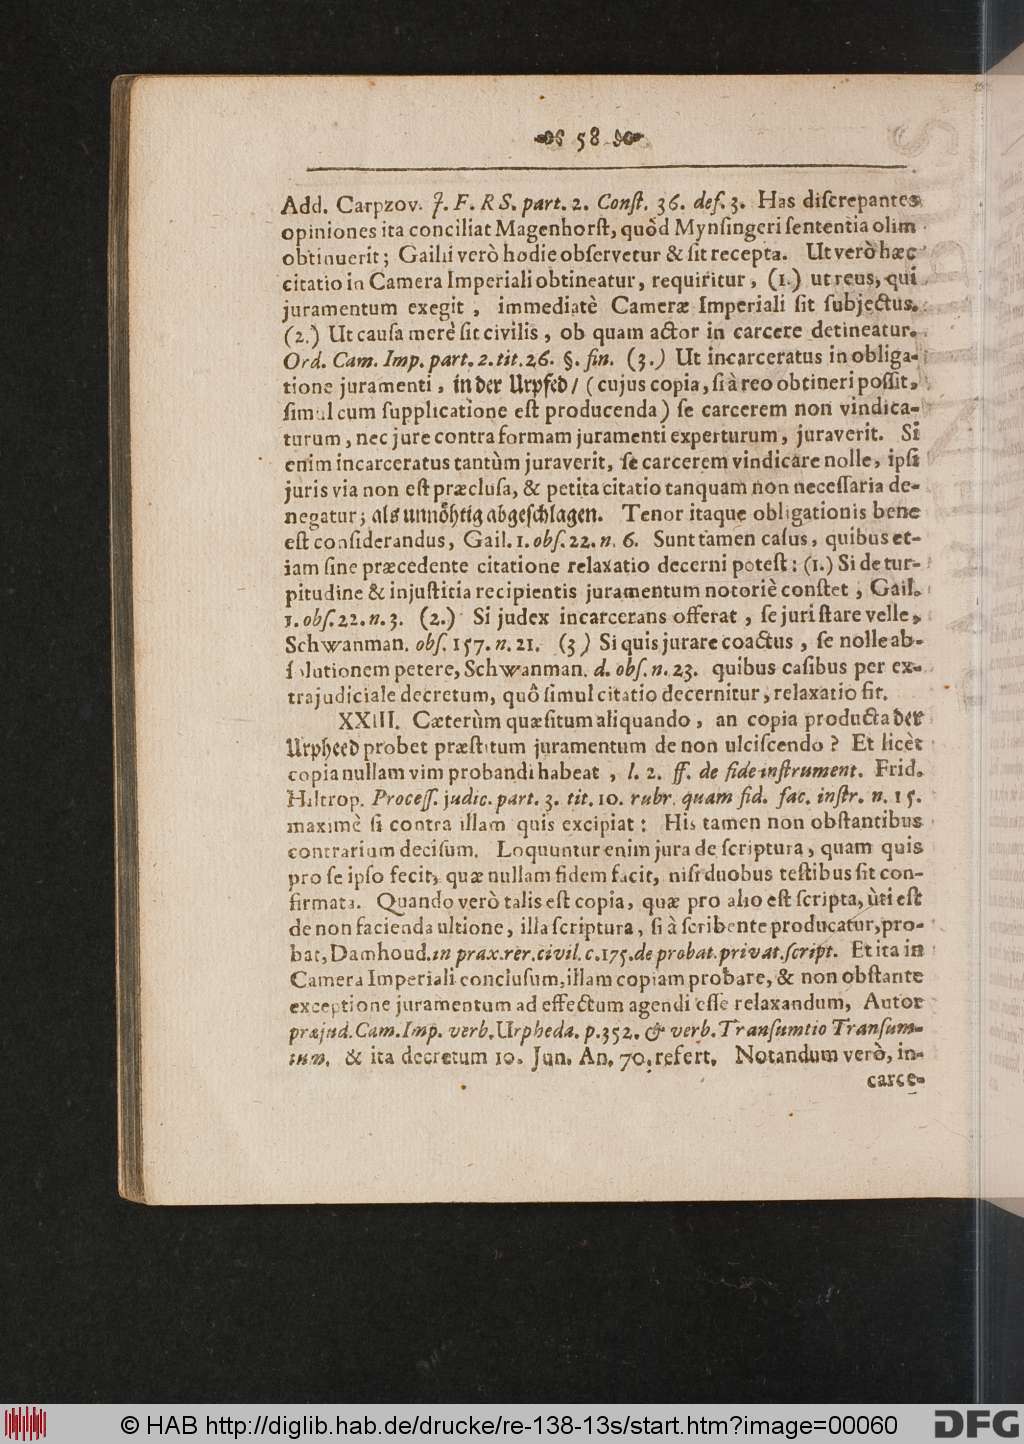 58
Add. Carpzov. J. F. R S. part. 2. Conſt. 36. def. 3. Has diſcrepantes
opiniones ita conciliat Magenhorſt, quòd Mynſingeri ſententia olim
obtinuerit; Gailii verò hodie obſervetur & ſit recepta. Ut verò hæc
citatio in Camera Imperiali obtineatur, requiritur, (1.) ut reus, qui
juramentum exegit, immediatè Cameræ Imperiali ſit ſubjectus.
(2.) Ut cauſa merè ſit civilis, ob quam actor in carcere detineatur.
Ord. Cam. Imp. part. 2. tit. 26. §. fin. (3.) Ut incarceratus in obliga-
tione juramenti, in der Urpfed/ (cujus copia, ſi à reo obtineri poſſit,
ſimul cum ſupplicatione eſt producenda) ſe carcerem non vindica-
turum, nec jure contra formam juramenti experturum, juraverit. Si
enim incarceratus tantùm juraverit, ſe carcerem vindicare nolle, ipſi
juris via non eſt præcluſa, & petita citatio tanquam non neceſſaria de-
negatur; als unnöhtig abgeſchlagen. Tenor itaque obligationis bene
eſt conſiderandus, Gail. 1. obſ. 22. n. 6. Sunt tamen caſus, quibus et-
iam ſine præcedente citatione relaxatio decerni poteſt: (1.) Si de tur-
pitudine & injuſtitia recipientis juramentum notoriè conſtet, Gail.
1. obſ. 22. n. 3. (2.) Si judex incarcerans offerat, ſe juri ſtare velle,
Schwanman. obſ. 157. n. 21. (3) Si quis jurare coactus, ſe nolle ab-
ſolutionem petere, Schwanman. d. obſ. n. 23. quibus caſibus per ex-
trajudiciale decretum, quô ſimul citatio decernitur, relaxatio fit.
XXIII. Cæterùm quæſitum aliquando, an copia producta der
Urpheed probet præſtitum juramentum de non ulciſcendo? Et licèt
copia nullam vim probandi habeat, l. 2. ff. de fide inſtrument. Frid.
Hiltrop. Proceſſ. judic. part. 3. tit. 10. rubr. quam fid. fac. inſtr. n. 15.
maximè ſi contra illam quis excipiat: His tamen non obſtantibus
contrarium deciſum. Loquuntur enim jura de ſcriptura, quam quis
pro ſe ipſo fecit, quæ nullam fidem facit, niſi duobus teſtibus ſit con-
firmata. Quando verò talis eſt copia, quæ pro alio eſt ſcripta, ùti eſt
de non facienda ultione, illa ſcriptura, ſi à ſcribente producatur, pro-
bat, Damhoud. in prax. rer. civil. c. 175. de probat. privat. ſcript. Et ita in
Camera Imperiali concluſum, illam copiam probare, & non obſtante
exceptione juramentum ad effectum agendi eſſe relaxandum, Autor
præjud. Cam. Imp. verb. Urpheda. p. 352. & verb. Tranſumtio Tranſum-
tum. & ita decretum 10. Jun. An. 70. refert. Notandum verò, in-
carce-
© HAB http://diglib.hab.de/drucke/re-138-13s/start.htm?image=00060
DFG